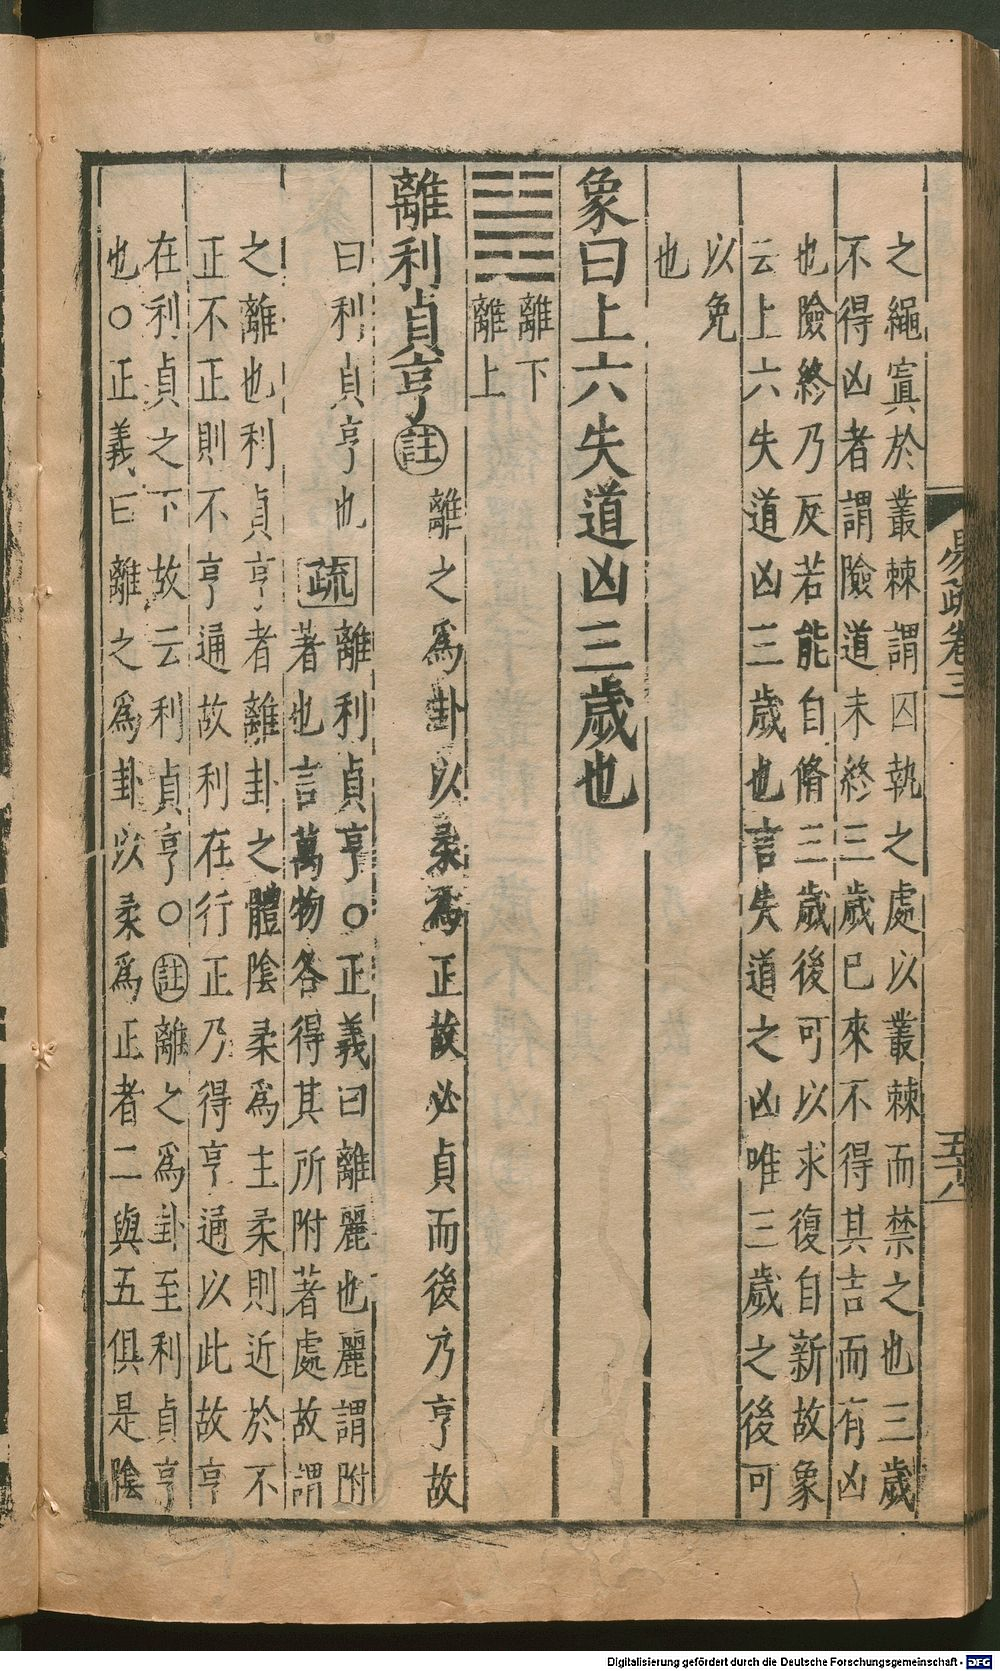 之繩寘於叢棘謂囚執之處以叢棘而禁之也三歲
不得凶者謂險道未終三歲已來不得其吉而有凶
也險終乃反若能自脩三歲後可以求復自新故象
云上六失道凶三歲也言失道之凶唯三歲之後可
以免
也
象曰上六失道凶三歲也
離下
離上
離利貞亨註
離之爲卦以柔爲正故必貞而後乃亨故
曰利貞亨也
疏
離利貞亨○正義曰離麗也麗謂附
著也言萬物各得其所附著處故謂
之離也利貞亨者離卦之體陰柔爲主柔則近於不
正不正則不亨通故利在行正乃得亨通以此故亨
在利貞之下故云利貞亨○註離之爲卦至利貞亨
也○正義曰離之爲卦以柔爲正者二與五俱是陰
易疏卷三
五六
Digitalisierung gefördert durch die Deutsche Forschungsgemeinschaft - DFG